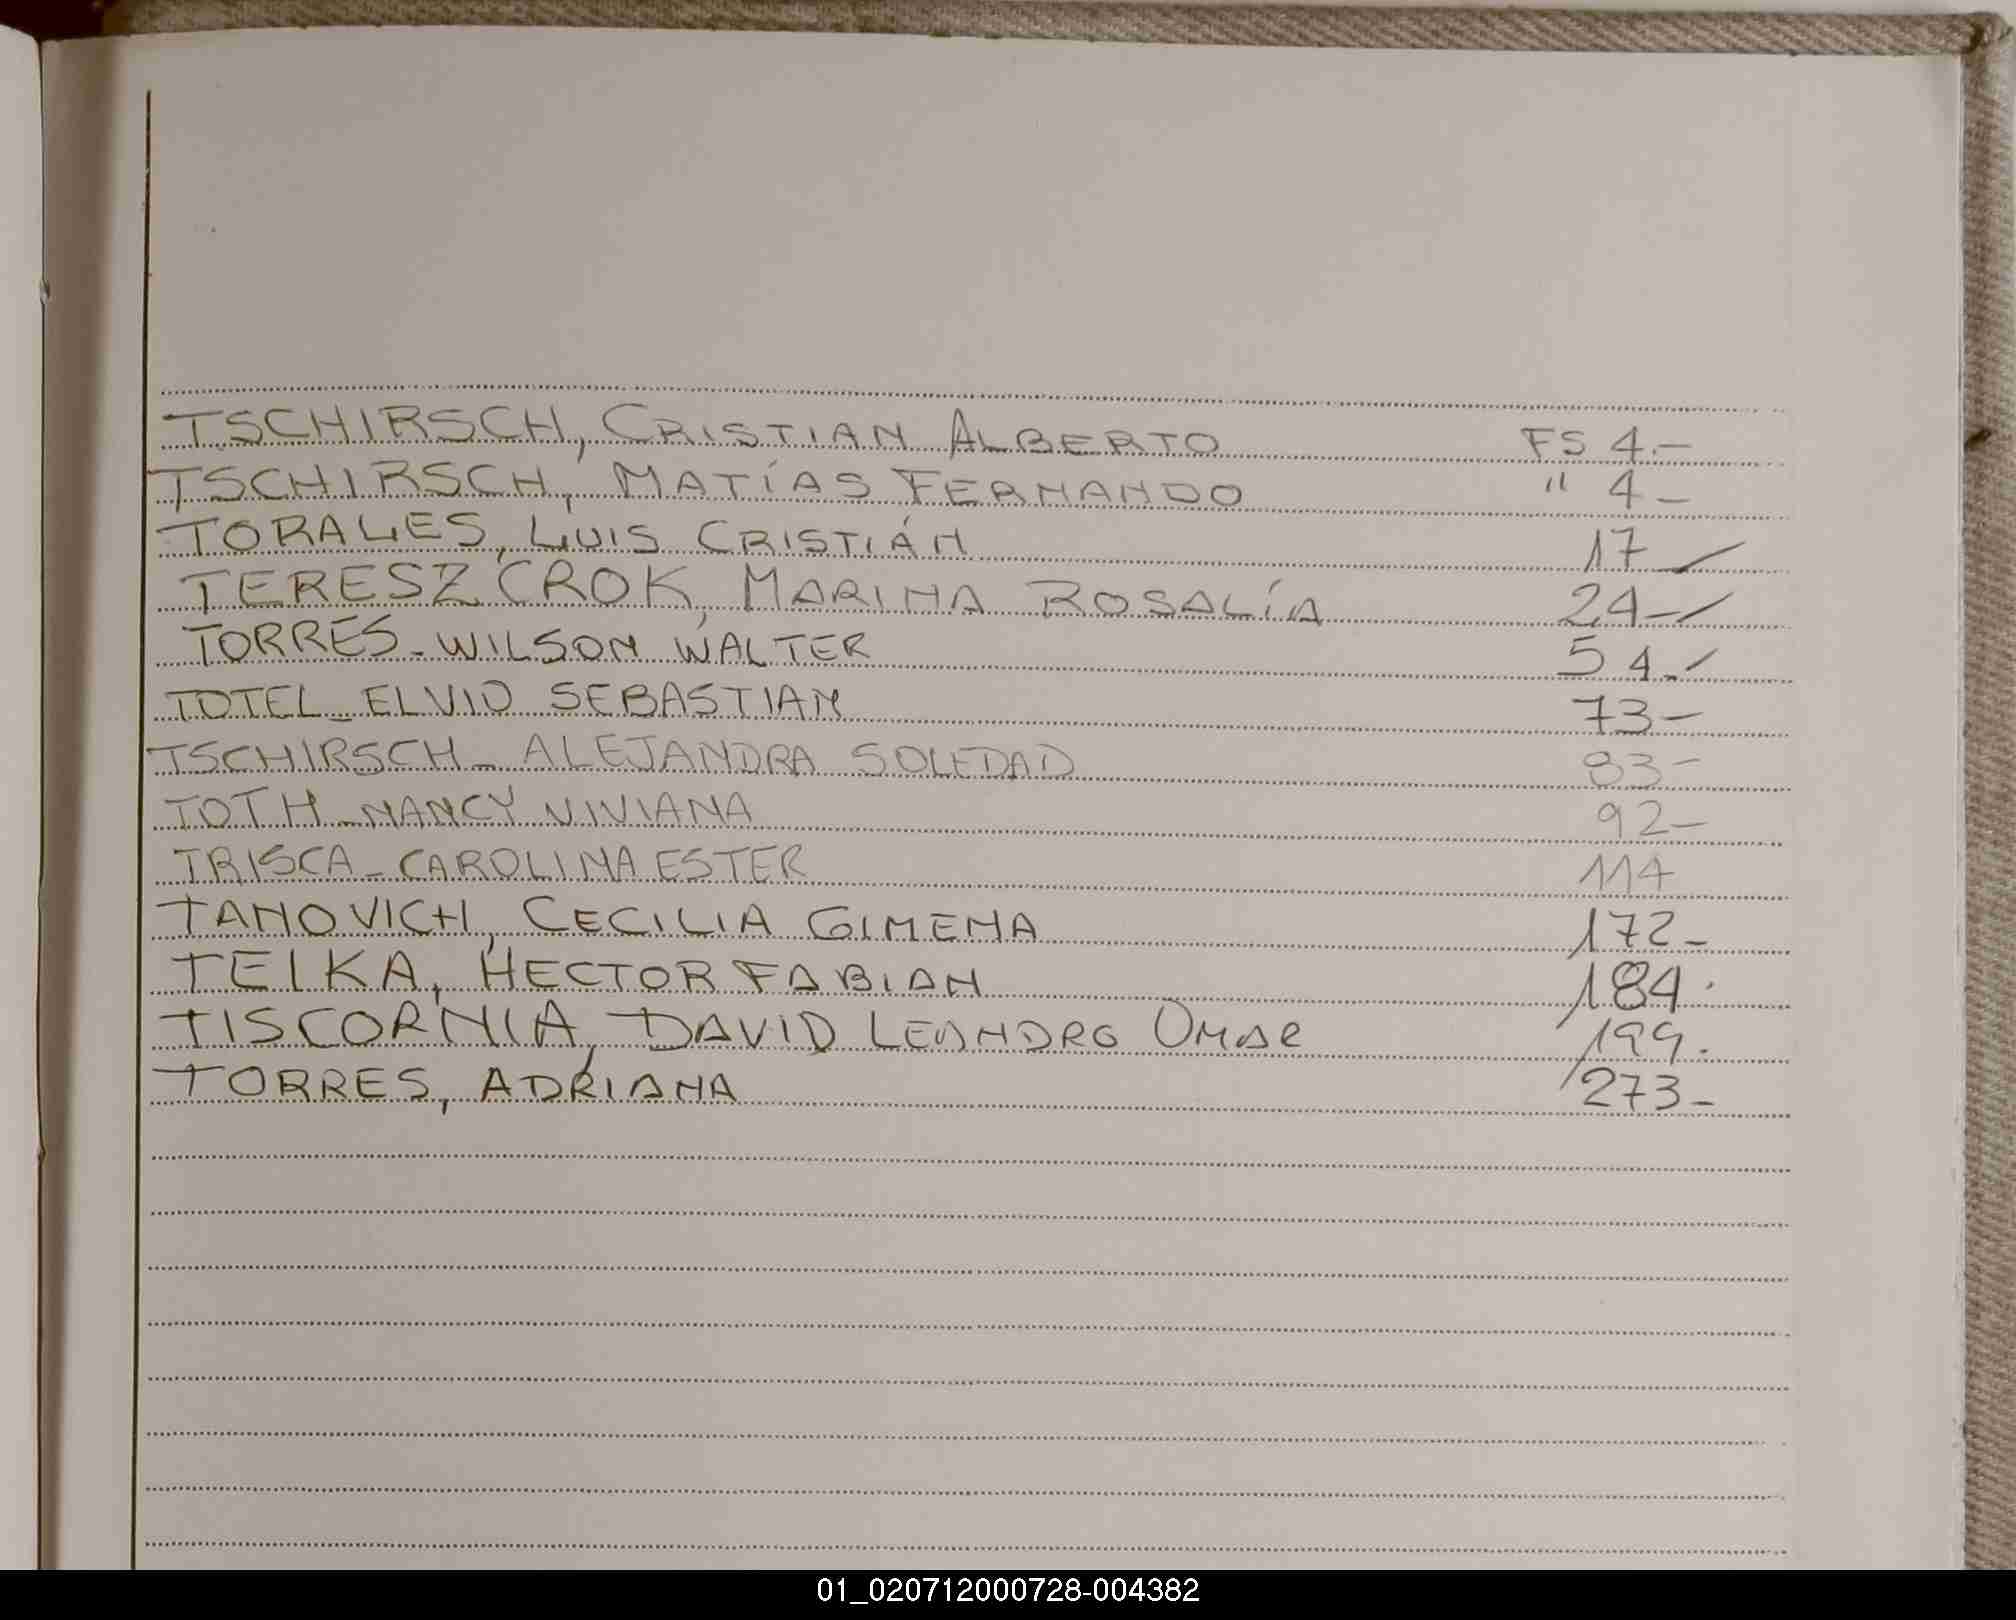 TSCHIRSCH, CRISTIAN ALBERTO FS 4.-
TSCHIRSCH, MATÍAS FERNANDO " 4-
TORALES, LUIS CRISTIÁN 17-
TERESZCROK, MARINA ROSALÍA 24-
TORRES-WILSON WALTER 54-
TOTEL-ELVIO SEBASTIAN 73-
TSCHIRSCH-ALEJANDRA SOLEDAD 83-
TOTH-NANCY VIVIANA 92-
TRISCA-CAROLINA ESTER 114
TANOVICH, CECILIA GIMENA 172-
TEIKA, HECTOR FABIAN 184.
TISCORNIA, DAVID LEANDRO OMAR 199.
TORRES, ADRIANA 273-
01_020712000728-004382